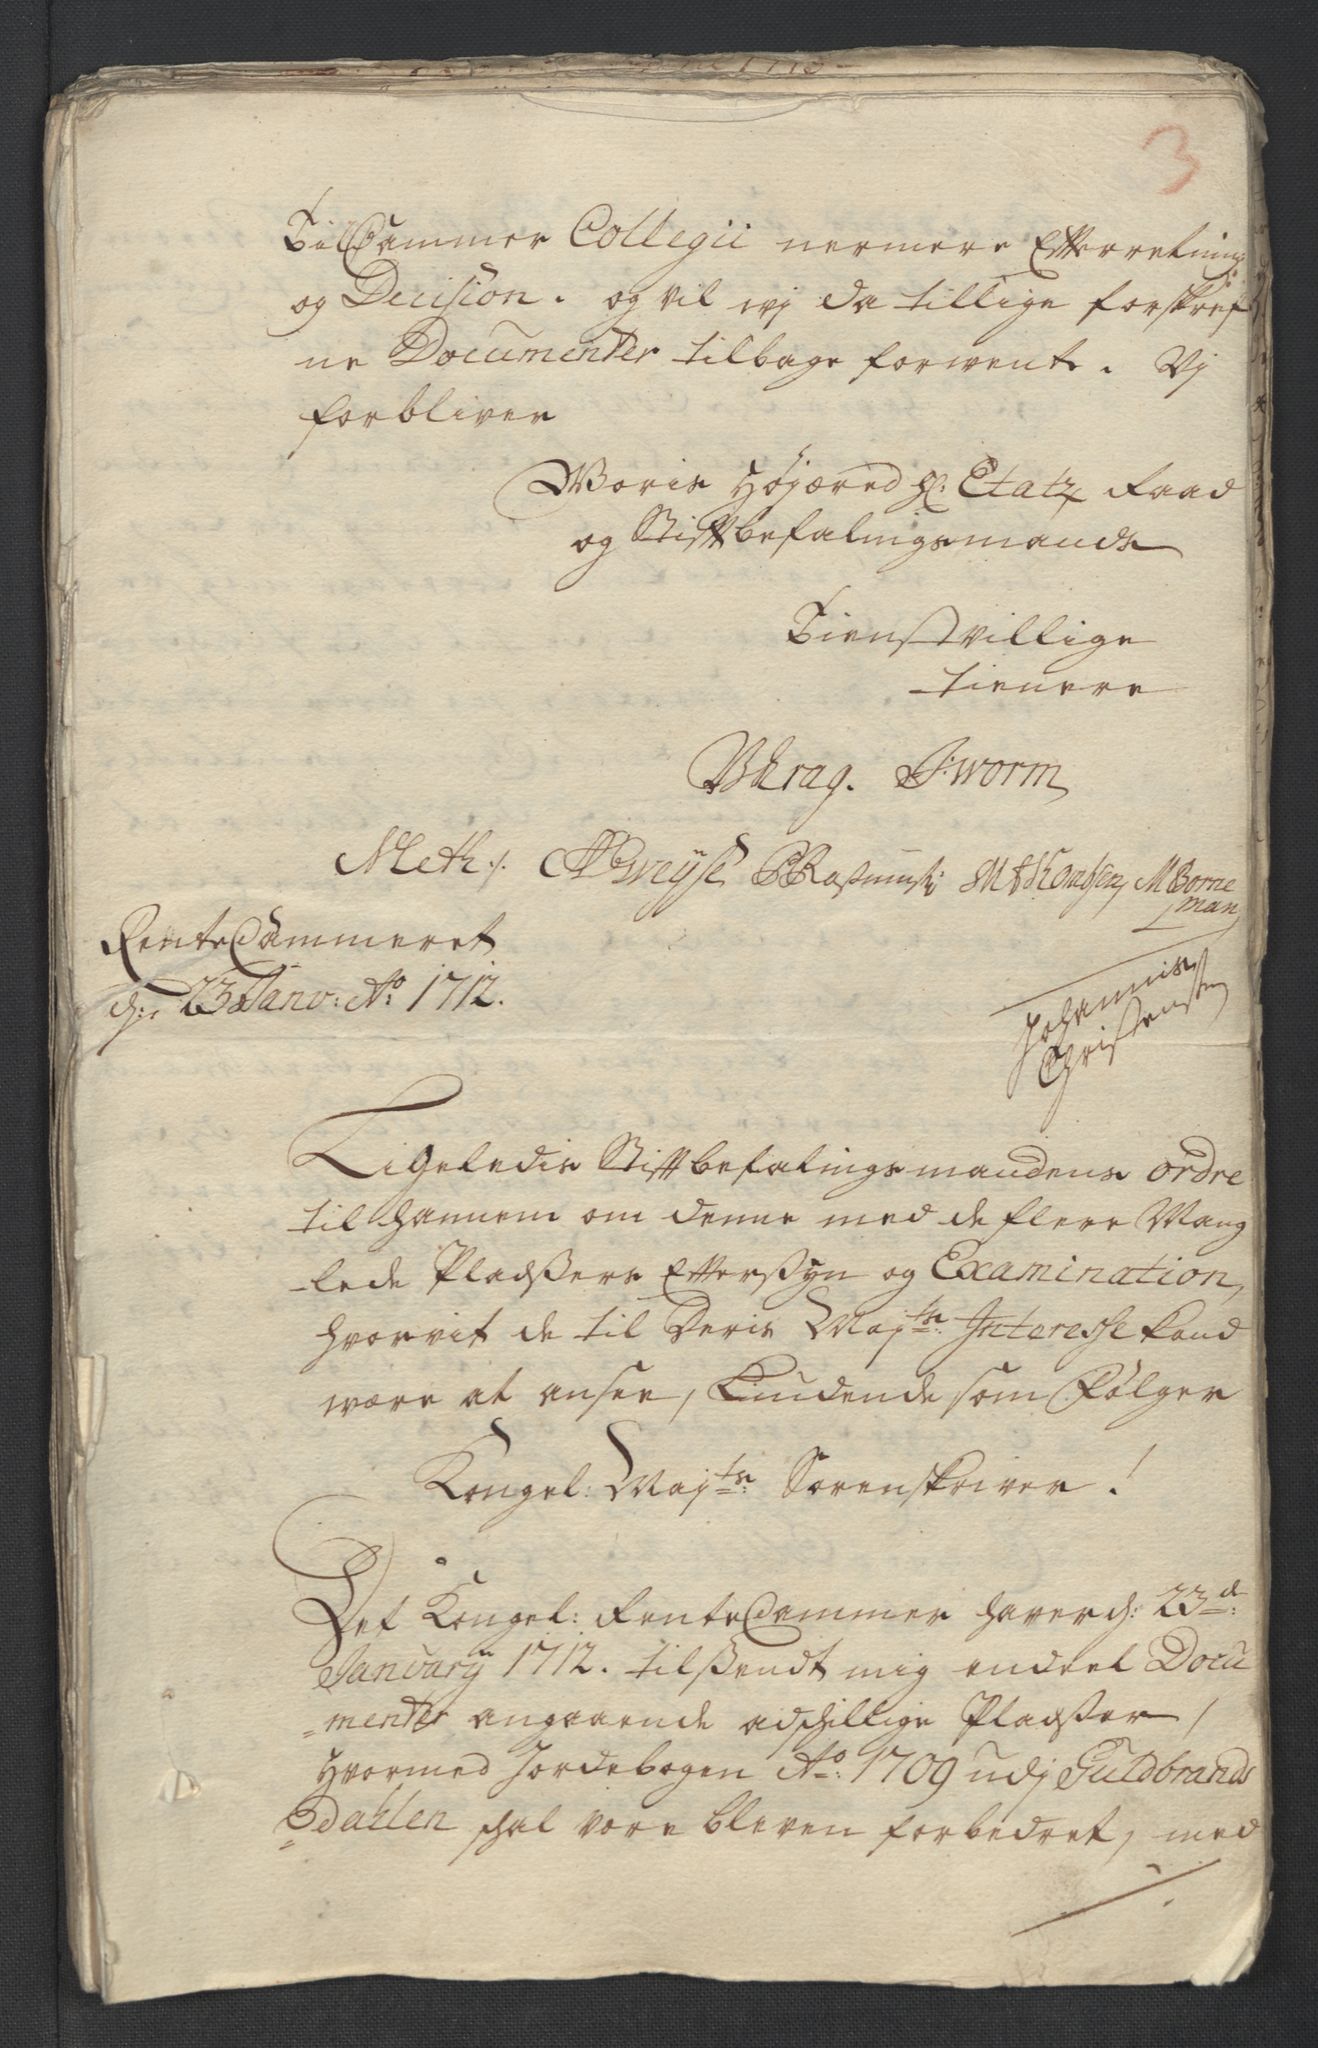 3
Til Cammer Collegii nermere Efterretning
og Decision. og vil wj da tillige forskref
ne Documenter tilbage forwente. Vj
forbliver
Woris Højæred Hl: Etatz Raad
og Stiftbefalingsmands
Tienstvillige
tienere
BKrag. J: worm
Meth:/. Aweÿse PRasmuss: MThomsen M Borne
man
RenteCammeret
d: 23 Janv: Ao: 1712.
Johannis
Christensen
Ligeledis Stiftbefalingsmandens ordre
til hannem om denne med de flere Mang
lede Pladssers Efterssyn og Examination,
hvorvit de til Deris Maj:ts Interesse kand
wære at ansee, Liudende som Følger
Kongel: Maj:ts Sorenskriver!
Det Kongel: RenteCammer haver d: 23de:
Januarÿ 1712. tilssendt mig endeel Docu
=menter angaaende adschillige Pladsser /
Hvormed Jordebogen Ao: 1709 udj Guldbrands
=dahlen schal vere bleven forbedret, med